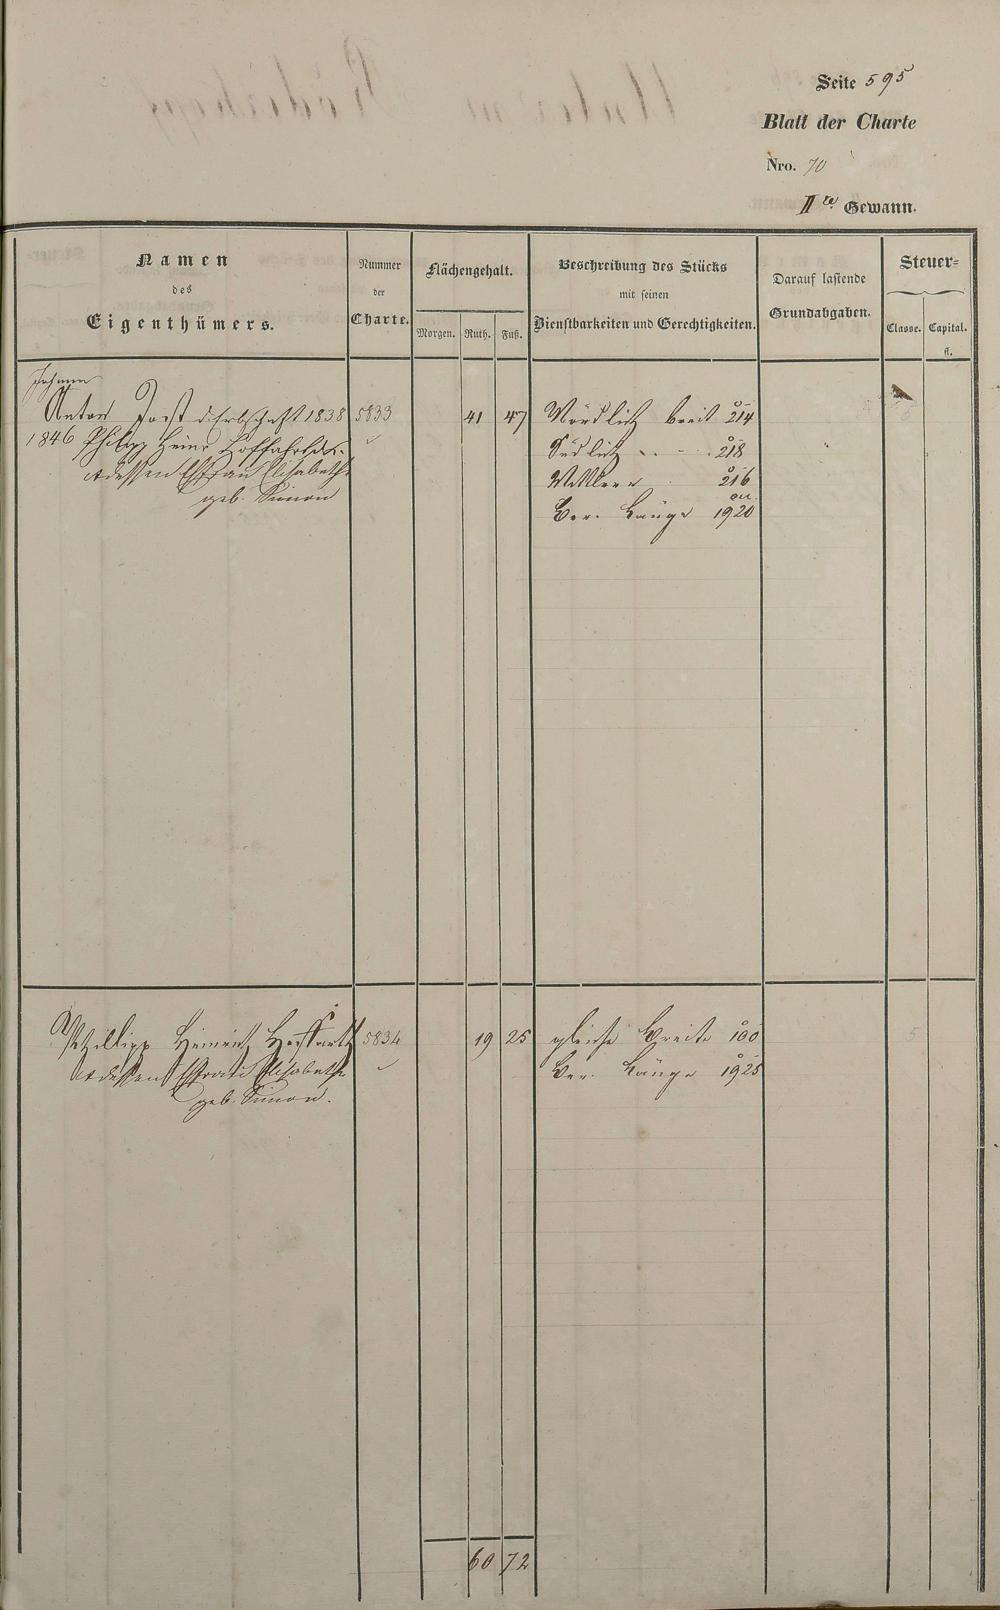 Seite 595
Blatt der Charte
Nro. 70
IIte Gewann.
Namen
des
Eigenthümers.
Nummer
der
Charte.
Flächengehalt.
Morgen. Ruth. Fuß.
Beschreibung des Stücks
mit seinen
Dienstbarkeiten und Gerechtigkeiten.
Darauf lastende
Grundabgaben.
Steuer=
Classe. Capital.
fl.
Johann
Anton Jost d. Erbschaft 1838 5833 41 47 Nördlich breit 214
1846 Philipp Heinr. Südlich 218
dessen Ehefrau Elisabeth Mittlere 216
geb. Simon
Ber. Länge 1920
Philipp Heinrich Hoffarth 5834 19 25 gleiche Breite 100
dessen Ehefrau Elisabeth Ber. Länge 1925
geb. Simon.
60 72